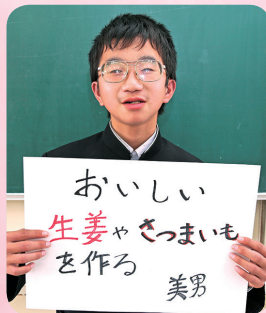 おいしい
生姜やさつまいも
を作る
美男